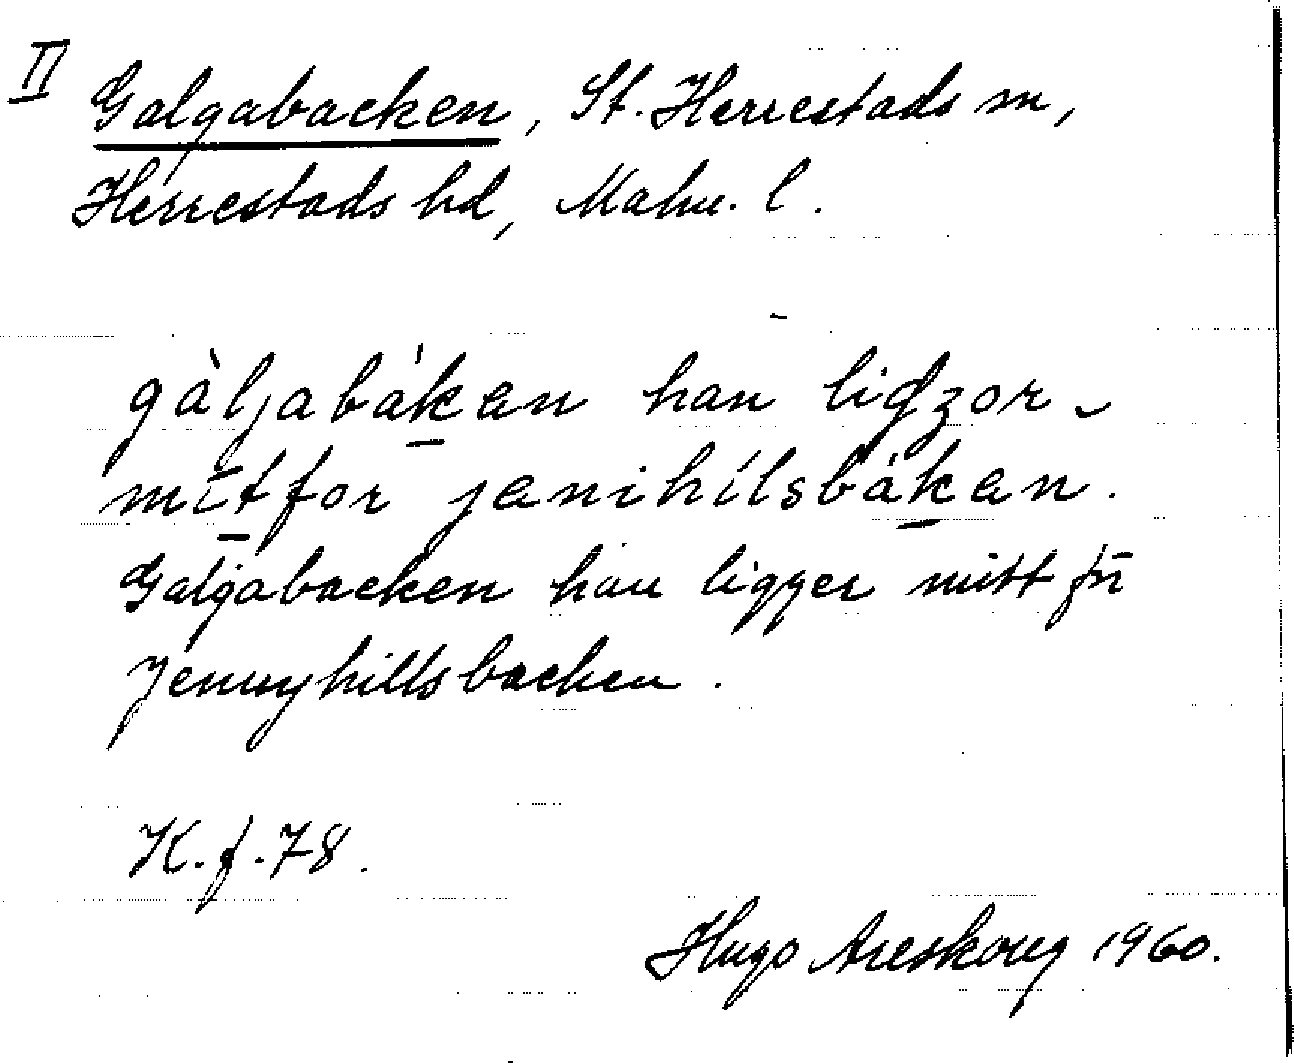 II Galgabacken, St. Herrestads sn,
Herrestads hd, Malm. l.
gàljabákan han ligzor
mitfor janihílsbákan.
Galgabacken han ligger mitt för
Jennyhillsbacken.
K. f. 78.
Hugo Areskoug 1960.